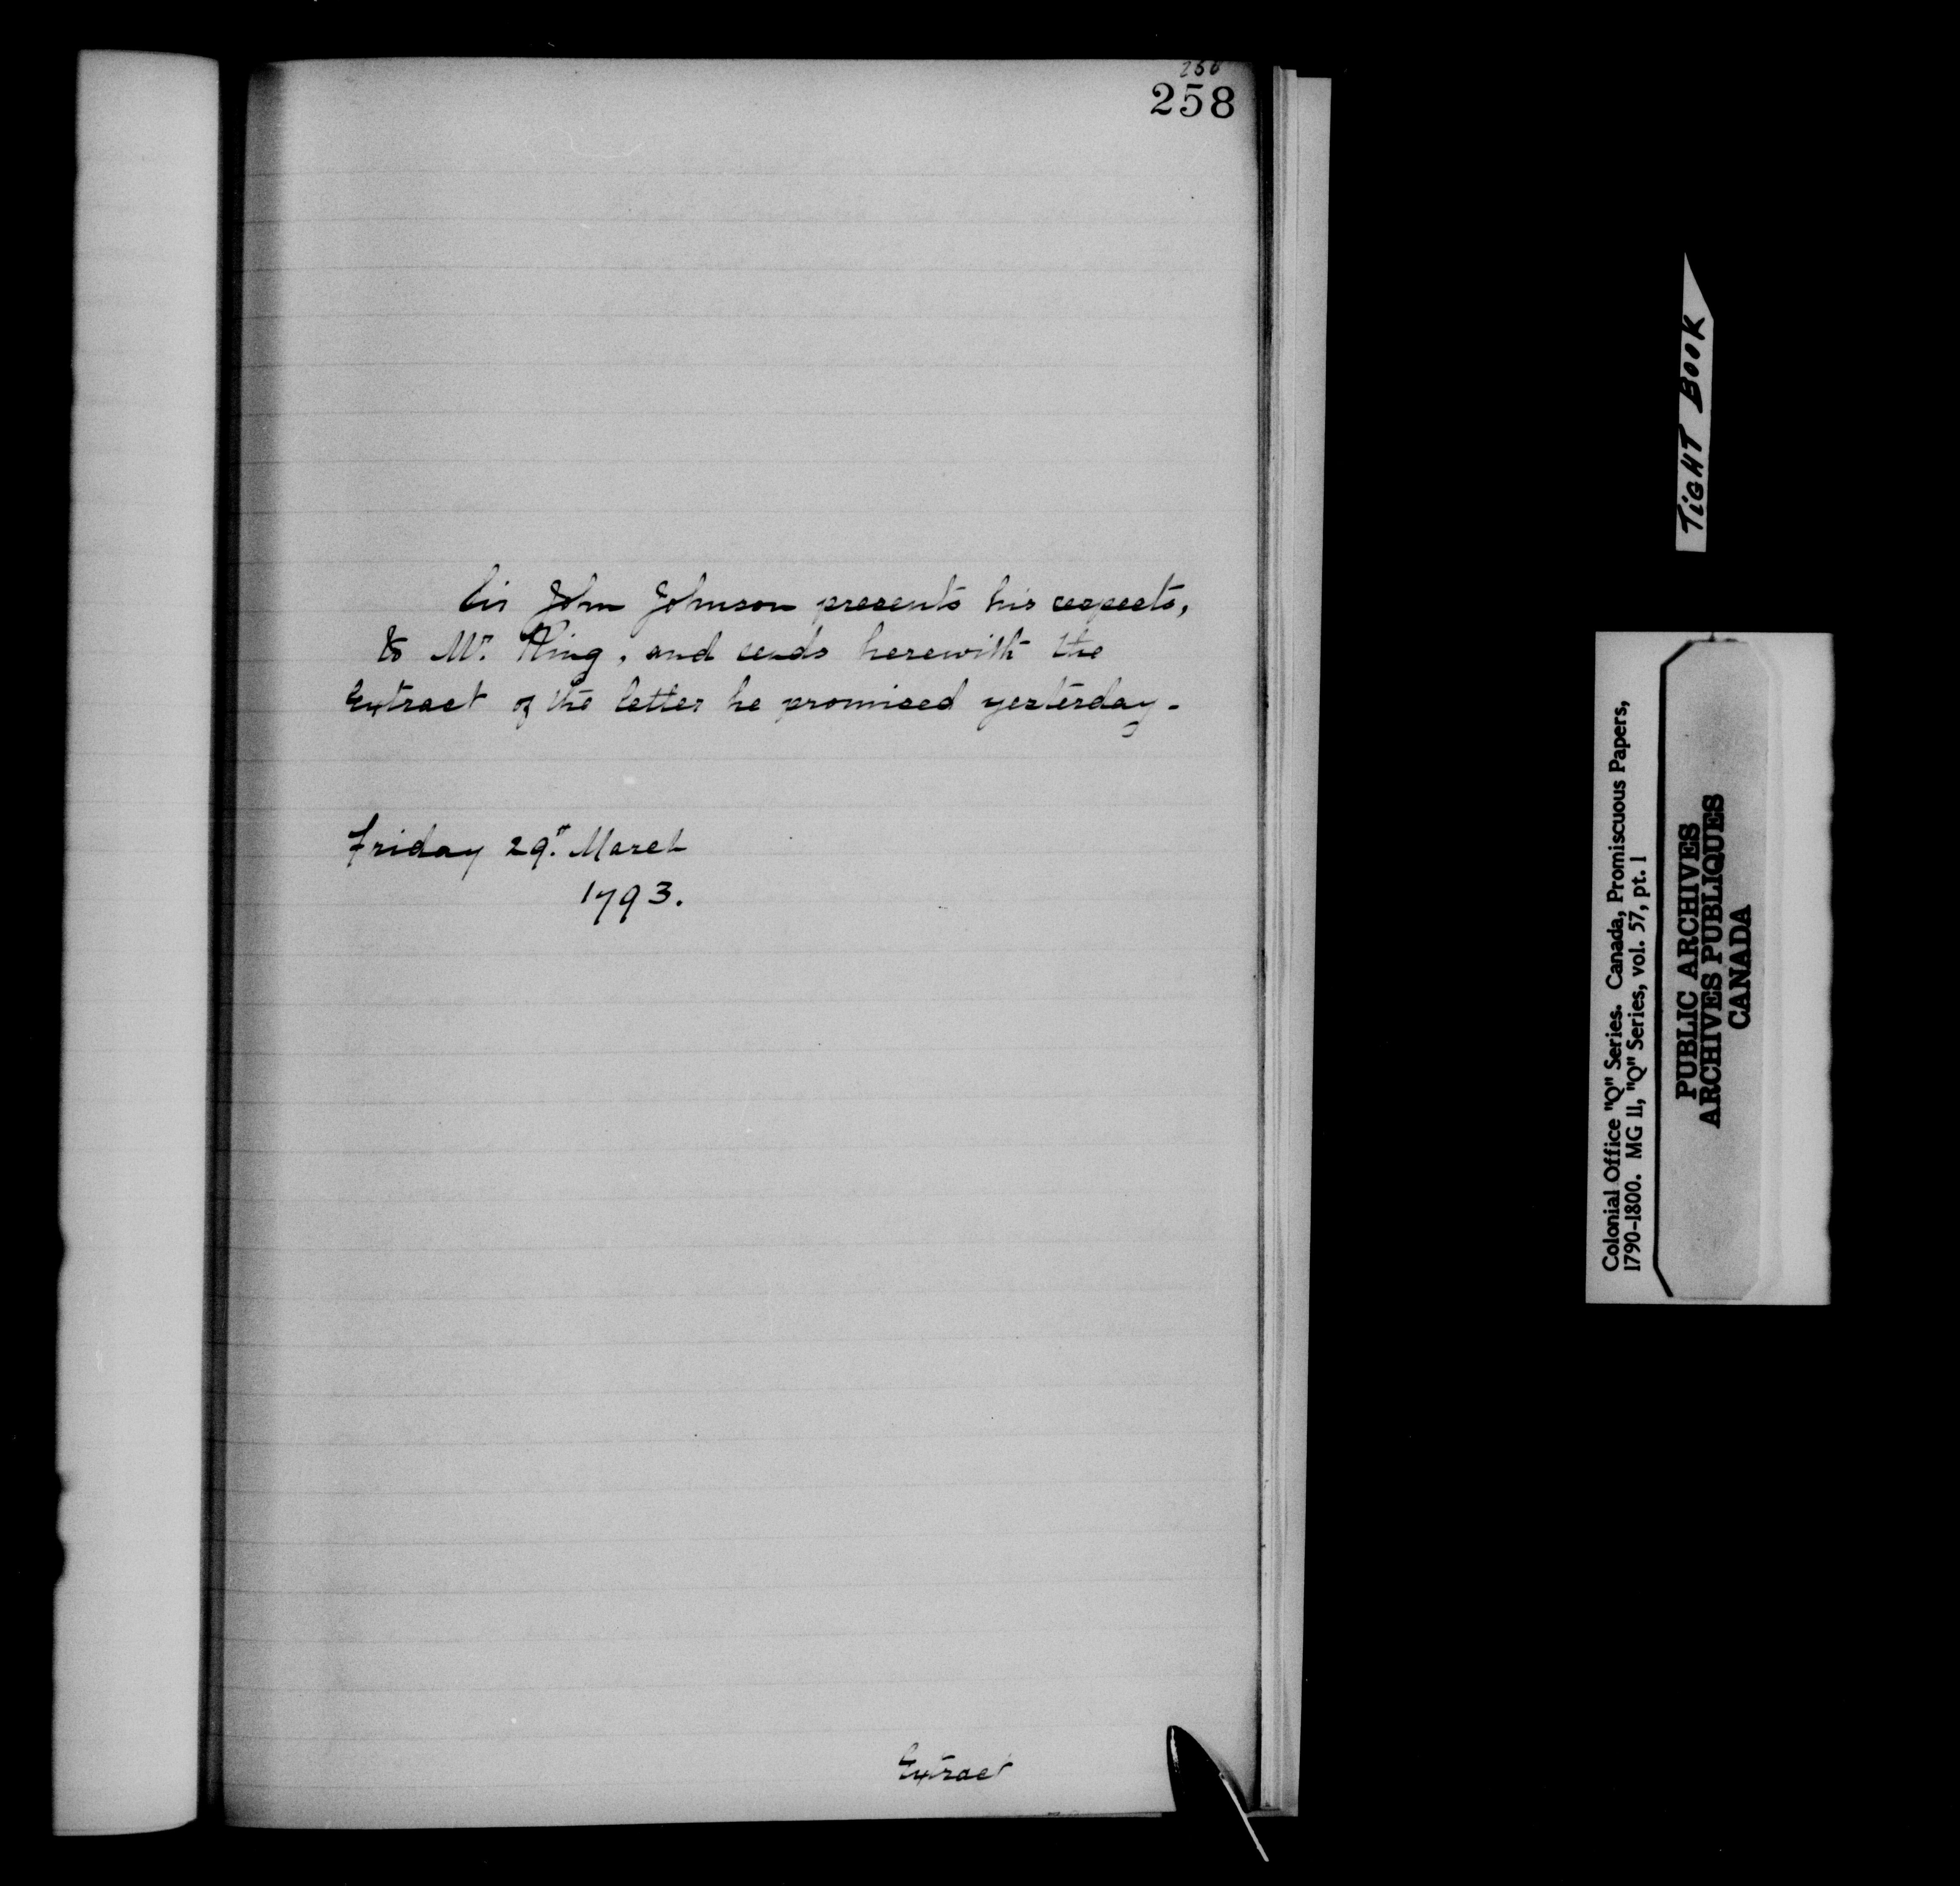 258
Sir John Johnson presents his respects,
to Mr. King, and sends herewith the
Extract of the letter he promised yesterday.
Friday 29th. March
1793.
Extract
TIGHT BOOK
Colonial Office "Q" Series. Canada, Promiscuous Papers,
1790-1800. MG 11, "Q" Series, vol. 57, pt. 1
PUBLIC ARCHIVES
ARCHIVES PUBLIQUES
CANADA